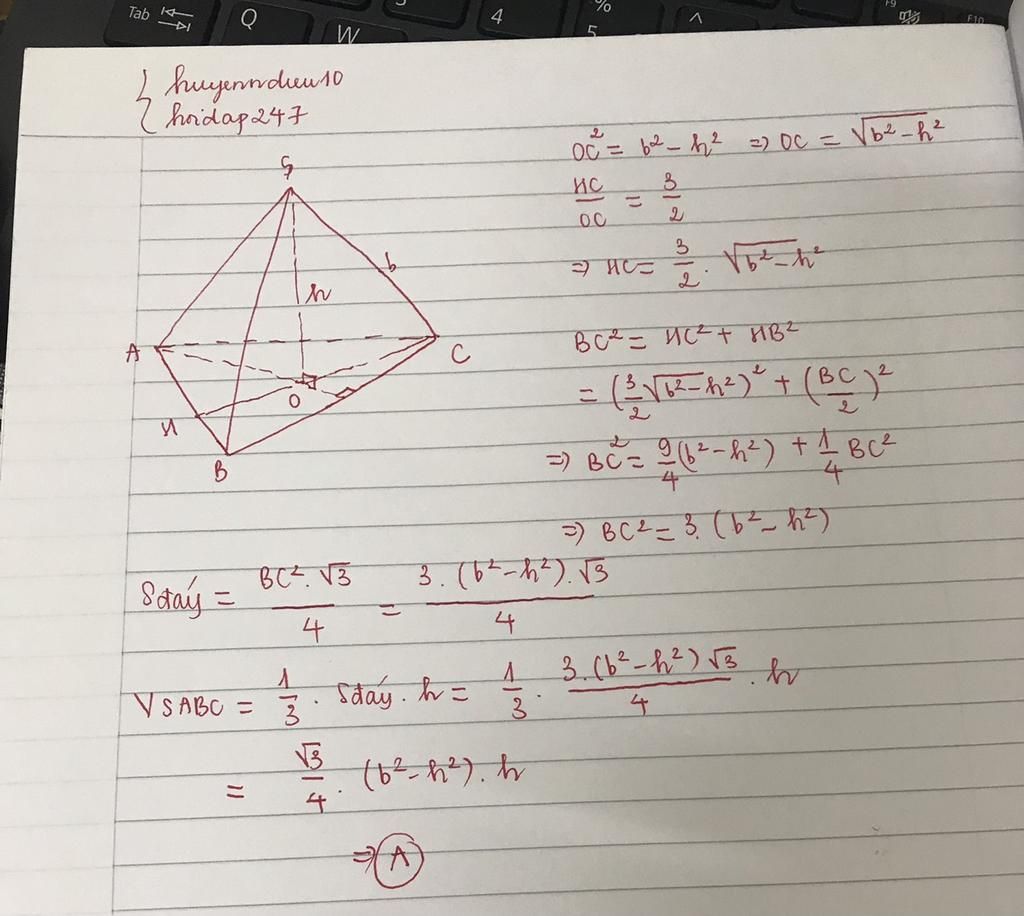 Tab Q W 3 4 % 5 ^ F9 F10
{ huyenndieu10
hoidap247
S
b
h
A
C
O
H
B
OC² = b² − h² ⇒ OC = √(b² − h²)
HC/OC = 3/2
⇒ HC = 3/2 . √(b² − h²)
BC² = HC² + HB²
= (3/2 √(b² − h²))² + (BC/2)²
⇒ BC² = 9/4 (b² − h²) + 1/4 BC²
⇒ BC² = 3. (b² − h²)
Sđáy = BC² . √3 / 4 = 3 . (b² − h²) . √3 / 4
VSABC = 1/3 . Sđáy . h = 1/3 . 3.(b² − h²) √3 / 4 . h
= √3/4 . (b² − h²) . h
⇒ A